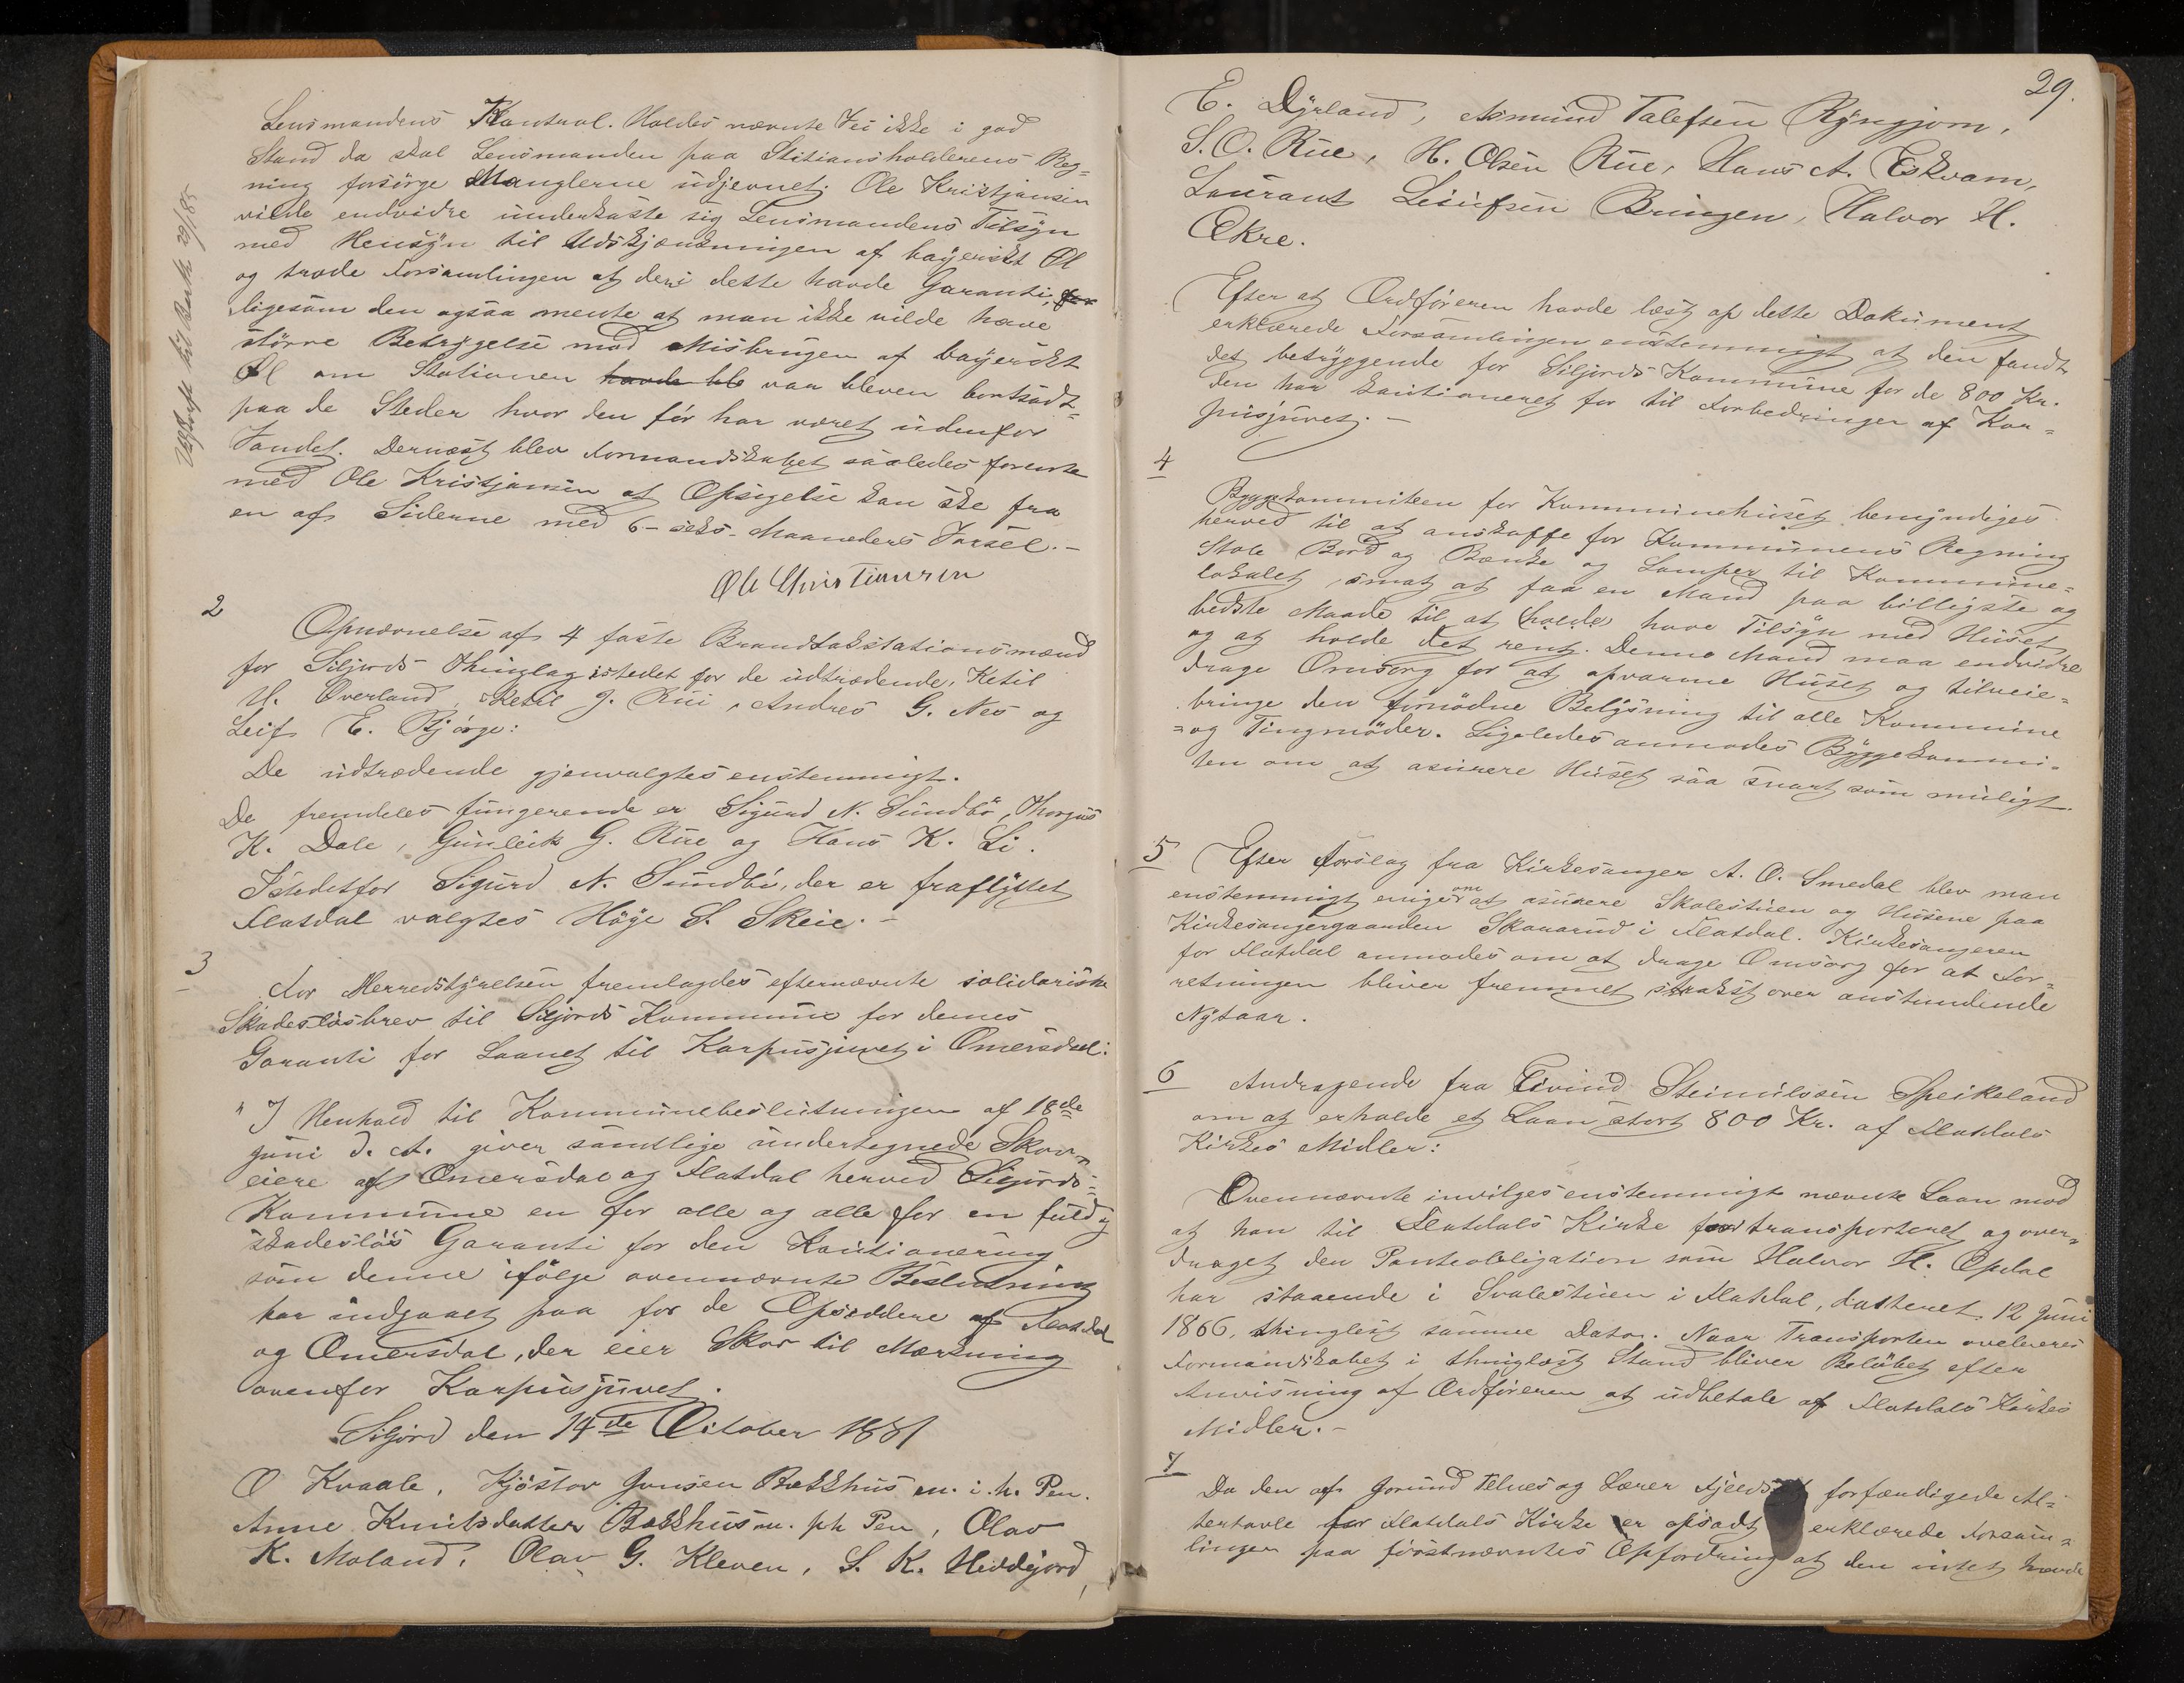 Lensmandens Kontrol. Holdes nævnte Vei ikke i god
Stand da skal Lensmanden paa Stitiansholderens Reg=
ning forsörge Manglerne udjevnet. Ole Kristjansen
vilde endvidre underkaste sig Lensmandens Tilsyn
med Hensyn til Udskjænkningen af bayerskt Öl
og trode Forsamlingen at deri dette havde Garanti, for
ligesom den ogsaa mente at man ikke vilde have
större Betryggelse mod Misbrugen af bayerskt
Öl om Stationen havde ble var bleven bortsadt
paa de Steder hvor den för har været udenfor
Vandet. Dernæst blev Formandskabet saaledes forente
med Ole Kristjansen at Opsigelse kan ske fra
en af Siderne med 6 - seks - Maaneders Varsel. -
Ole Christiansen
Udskrift til Bank 29/85
2
Opnævnelse af 4 faste Brandtakstationsmænd
for Siljords Thinglag istedet for de udtrædende, Ketil
H. Överland, Ketil J. Rui, Andres G. Nes og
Leif E. Bjørge:
De udtrædende gjenvalgtes enstemmigt.
De fremdeles fungerende er Sigurd N. Sundbö, Thorgus
K. Dale, Gunleik G. Rue og Hans K. Li.
Istedetfor Sigurd N. Sundbö, der er fraflyttet
Flatdal valgtes Höye S. Skeie. -
3
For Herredstyrelsen fremlagdes efternævnte solidariske
Skadeslösbrev til Siljords Kommune for dennes
Garanti for Laanet til Karpusjuvet i Omersdal:
" I Henhold til Kommunebeslutningen af 18de
Juni d. A. giver samtlige undertegnede Skov=
eiere af Omersdal og Flatdal herved Siljords=
Kommune en for alle og alle for en fuld og
skadeslös Garanti for den Kautionering
som denne ifölge ovennævnte Beslutning
har indgaaet paa for de Opsiddere af Flatdal
og Omersdal, der eier Skov til Mærkning
ovenfor Karpusjuvet.
Siljord den 14de October 1881
O Kvaale, Kjöstov Jonsen Bakkhus m. i. h. Pen.
Anne Knutsdatter Bakkhus m. ph Pen, Olav
K. Moland, Olav G. Kleven, S. K. Heddejord,
29.
E. Dyrland, Asmund Talefsen Ryngjom,
S. O. Rue, H. Olsen Rue, Hans A. Eskvam,
Laurant Leiufsen Bringen, Halvor H.
Ekre.
Efter at Ordföreren havde læst op dette Dokument
erklærede Forsamlingen enstemmigt at den fandt
det betryggende for Siljords Kommune for de 800 Kr.
den har kautioneret for til Forbedringer af Kar=
pusjuvet. -
4
Byggekommiteen for Kommunehuset bemyndiges
herved til at anskaffe for Kommunens Regning
Stole Bord og Bænke og Lamper til Kommune=
lokalet, samt at faa en Mand paa billigste og
bedste Maade til at holde have Tilsyn med Huset
og at holde det rent. Denne Mand maa endvidre
drage Omsorg for at opvarme Huset og tilveie=
bringe den fornödne Belysning til alle Kommune
= og Tingmöder. Ligeledes anmodes Byggekommi=
ten om at asurere Huset saa snart som muligt.
5 Efter Forslag fra Kirkesanger A. O. Smedal blev man
enstemmigt enige om at asurere Skolestuen og Husene paa
Kirkesangergaarden Skaarud i Flatdal. Kirkesangeren
for Flatdal anmodes om at drage Omsorg for at For=
retningen bliver fremmet strakst over anstundende
Nytaar.
6 Andragende fra Eivind Steinulsen Speikeland
om at erholde et Laan stort 800 Kr. af Flatdals
Kirkes Midler:
Ovennævnte invilges enstemmigt nævnte Laan mod
at han til Flatdals Kirke faar transporteret og over=
draget den Panteobligation som Halvor H. Opdal
har staaende i Svalestuen i Flatdal, datteret 12 Juni
1866, thinglæst samme Dato. Naar Transporten overleveres
Formandskabet i thinglæst Stand bliver Belöbet efter
Anvisning af Ordföreren at udbetale af Flatdals Kirkes
Midler. -
7
Da den af Jorund Telnes og Lærer forfærdigede Al=
tertavle for Flatdals Kirke er opsadt erklærede Forsam=
lingen paa förstnævntes Opfordring at den intet havde